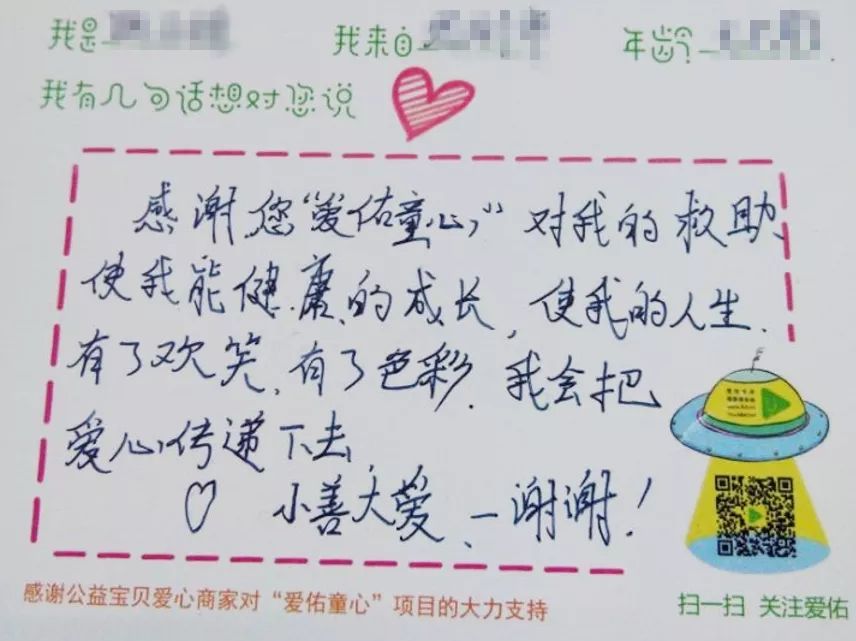 我是 我来自 年龄
我有几句话想对您说
感谢您“爱佑童心”对我的救助、
使我能健康的成长，使我的人生
有了欢笑，有了色彩．我会把
爱心传递下去
小善大爱，一谢谢！
感谢公益宝贝爱心商家对“爱佑童心”项目的大力支持
扫一扫 关注爱佑